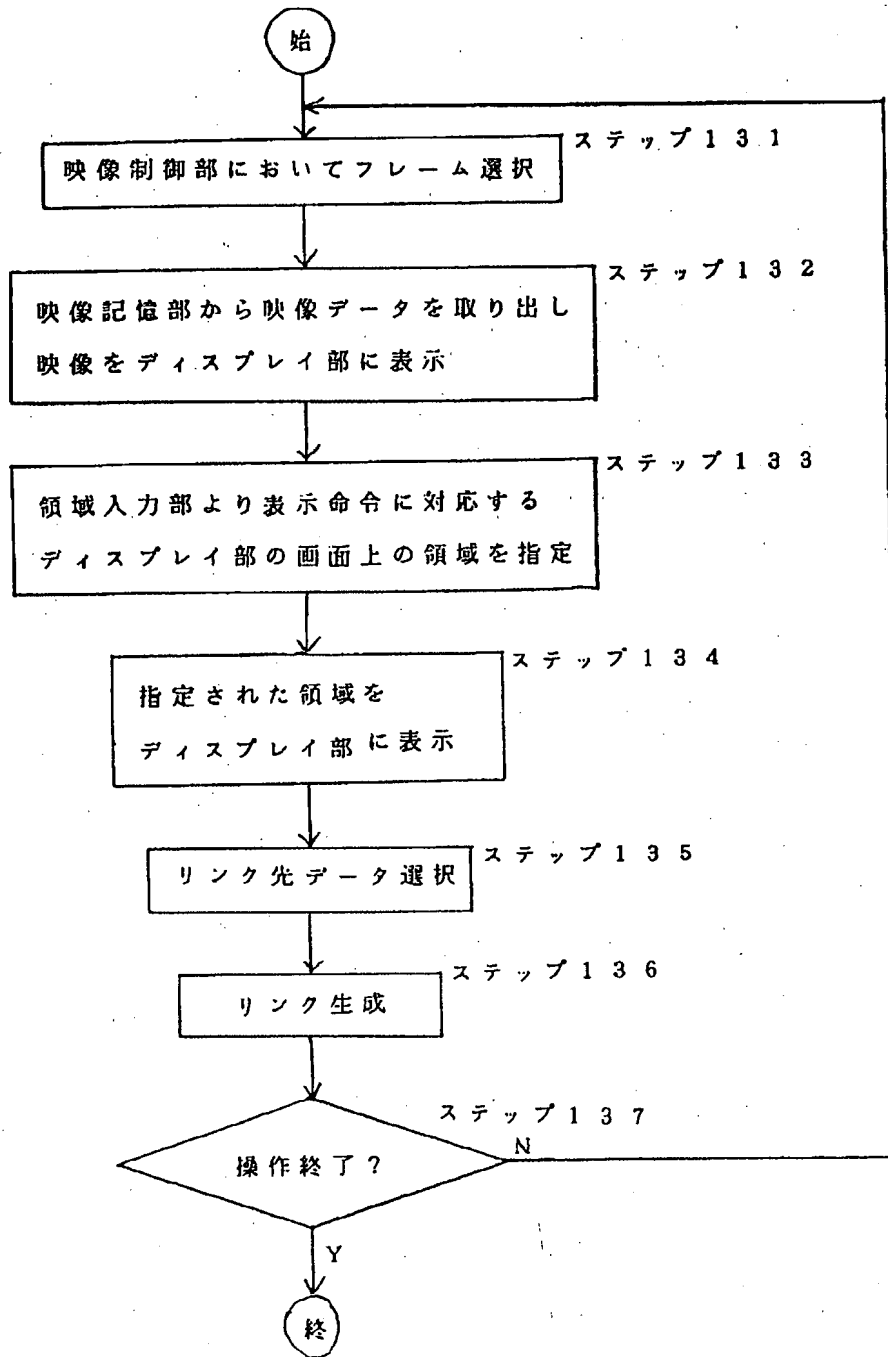 始
ステップ131
映像制御部においてフレーム選択
ステップ132
映像記憶部から映像データを取り出し
映像をディスプレイ部に表示
ステップ133
領域入力部より表示命令に対応する
ディスプレイ部の画面上の領域を指定
ステップ134
指定された領域を
ディスプレイ部に表示
ステップ135
リンク先データ選択
ステップ136
リンク生成
ステップ137
操作終了?
N
Y
終